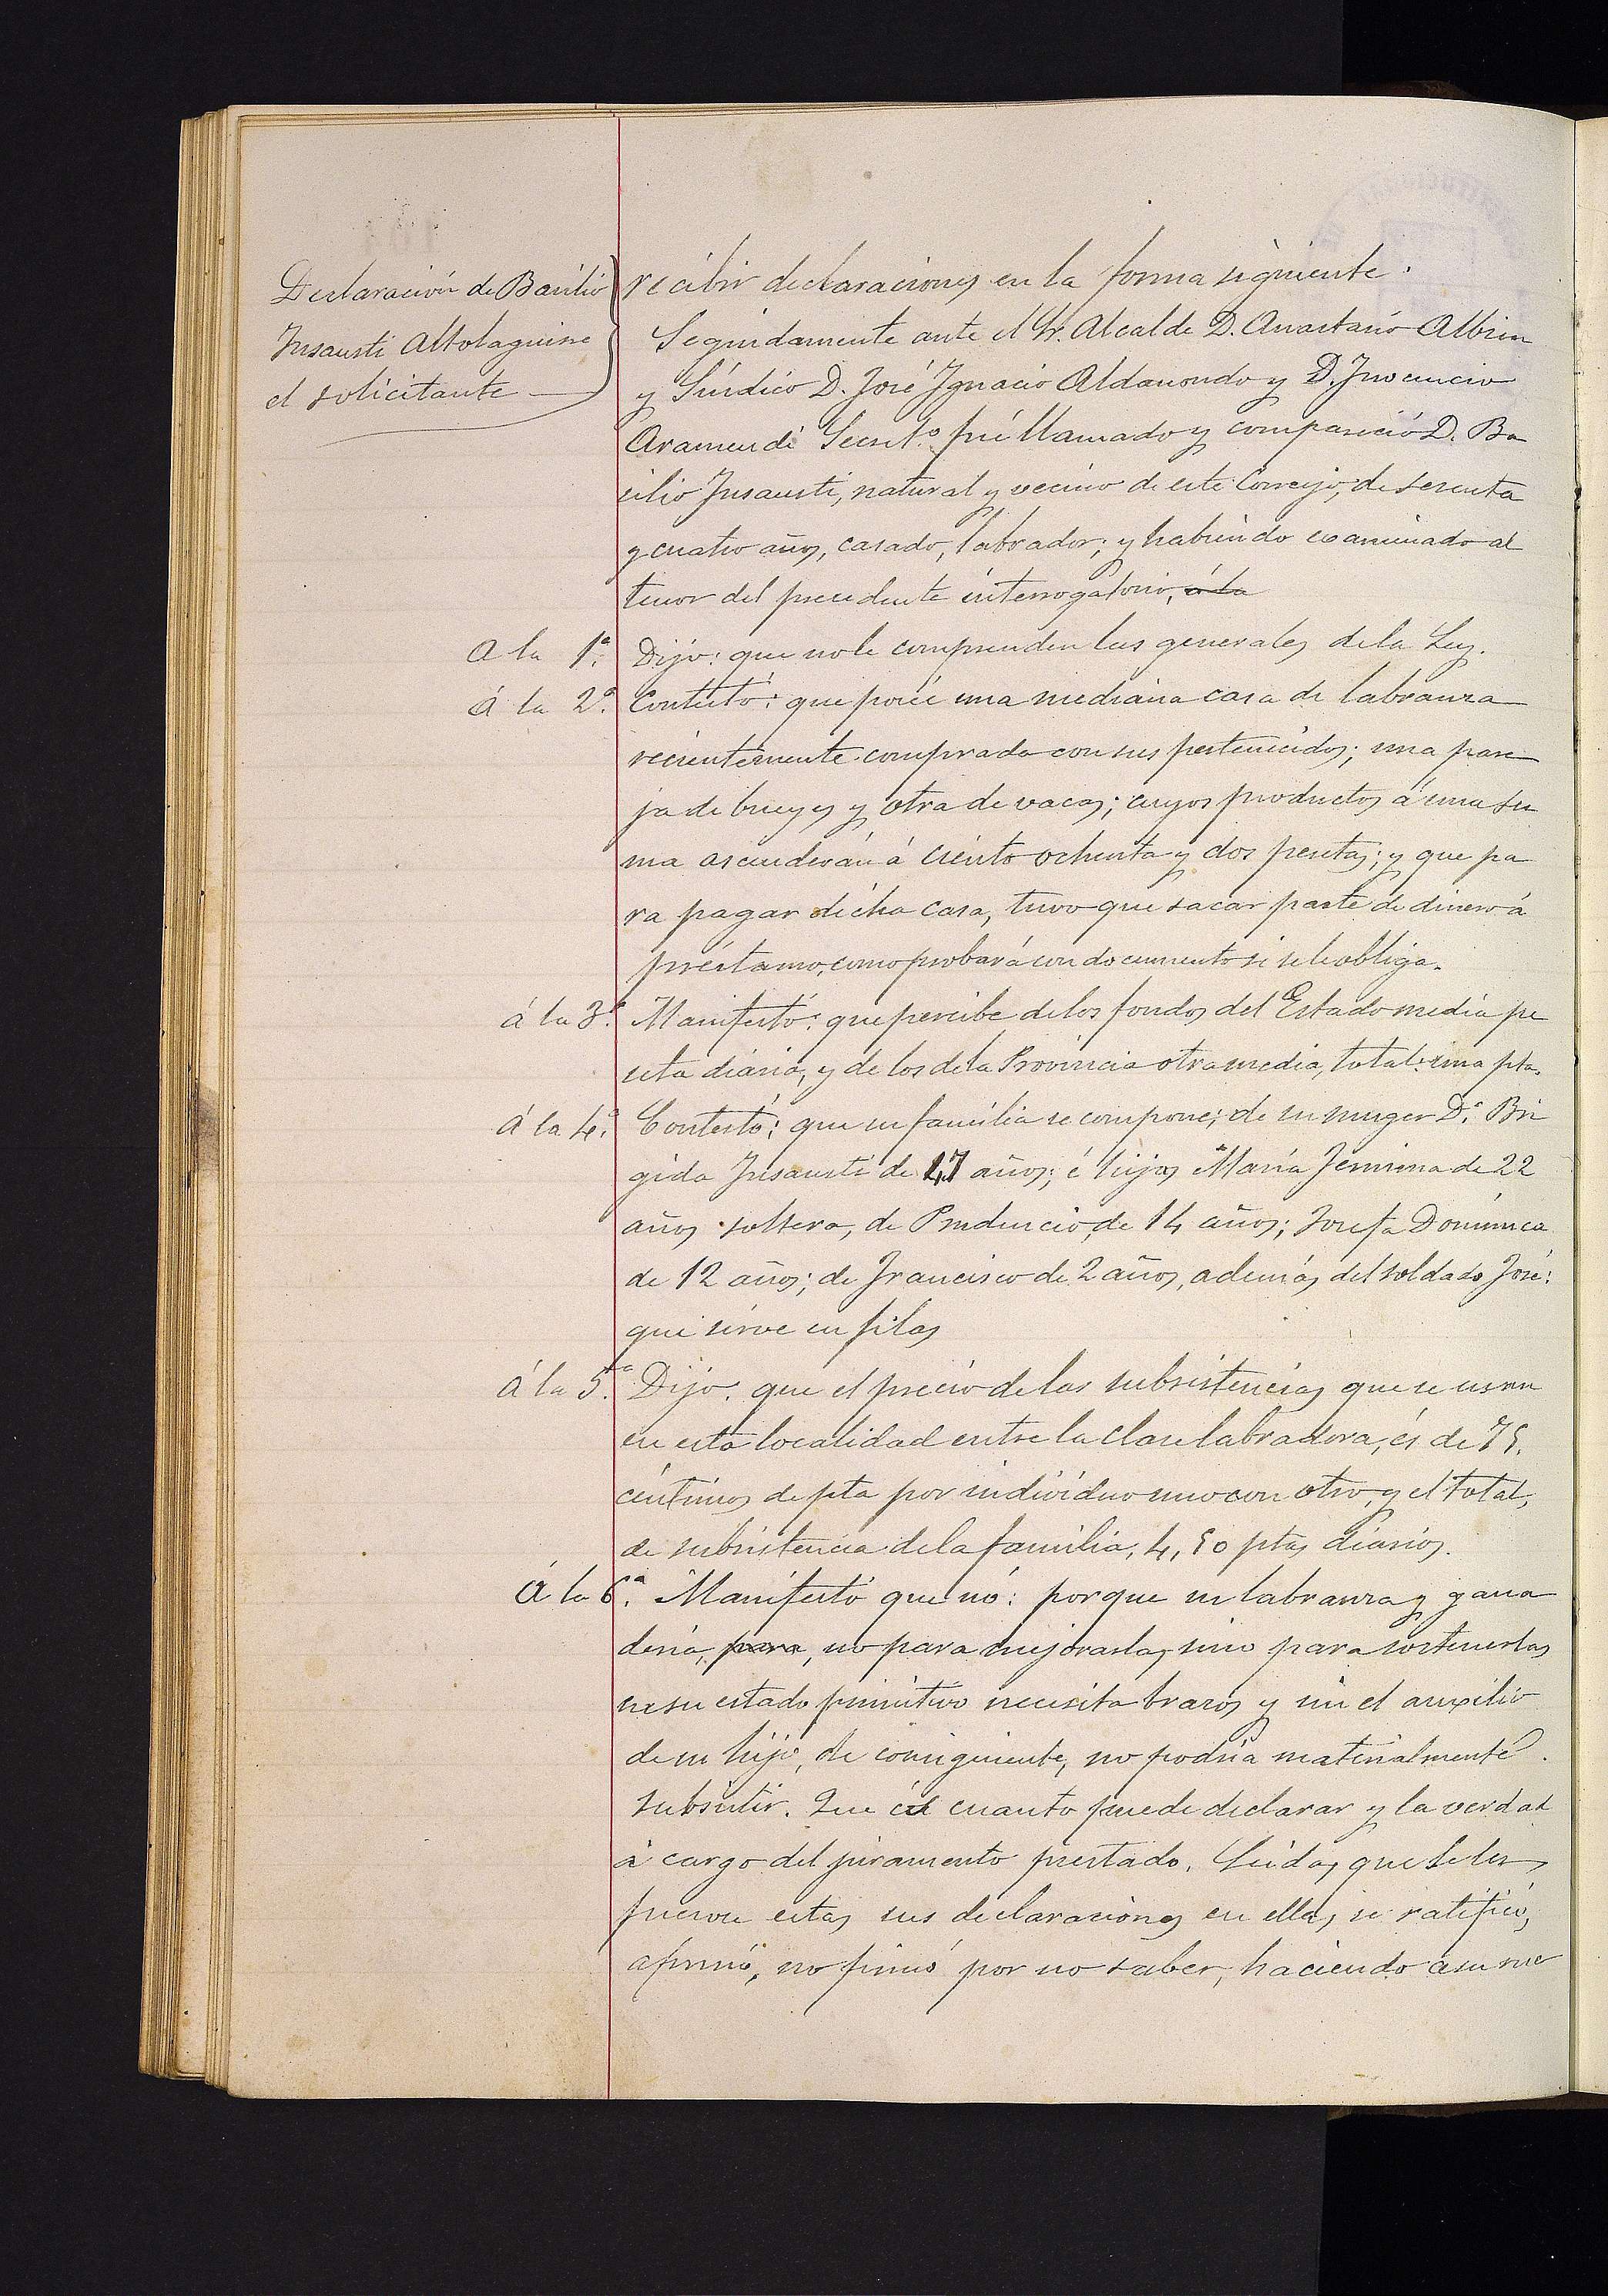 Declaración de Basilio
Insausti Altolaguirre
el solicitante
recibir declaraciones en la forma siguiente.
Seguidamente ante el Sr. Alcalde D. Anastasio Albisu
y Síndico D. José Ignacio Aldanondo y D. Inocencio
Aramendi Secret.º fué llamado y compareció D. Ba
silio Insausti, natural y vecino de este Concejo, de sesenta
y cuatro años, casado, labrador; y habiendo examinado al
tenor del precedente interrogatorio, á la
A la 1ª. Dijo: que no le comprenden las generales de la Ley.
á la 2ª. Contestó: que poseé una mediana casa de labranza
recientemente comprada con sus pertenecidos; una pare
ja de bueyes y otra de vacas; cuyos productos á una su
ma ascenderán á ciento ochenta y dos pesetas; y que pa
ra pagar dicha casa, tuvo que sacar parte de dinero á
préstamo, como probará con documento si se le obliga.
á la 3ª. Manifestó: que percibe de los fondos del Estado media pe
seta diaria, y de los de la Provincia otra media, total: una pta.
Á la 4ª. Contestó: que su familia se compone; de su muger Dª. Bri
gida Insausti de 47 años; é hijos María Jemima de 22
años soltera, de Prudencio, de 14 años; Josefa Dominica
de 12 años; de Francisco de 2 años, además del soldado José:
que sirve en filas
Á la 5ª. Dijo: que el precio de las subsistencias que se usan
en esta localidad entre la clase labradora, és de 75.
céntimos de pta por individuo uno con otro, y el total,
de subsistencia de la familia, 4,50 ptas diarios.
Á la 6ª. Manifestó que nó: porque su labranza y gana
dería, para, no para mejorarlas sino para sostenerlas
en su estado primitivo necesita brazos y sin el auxilio
de su hijo, de consiguiente, no podría materialmente
subsistir. Que és cuanto puede declarar y la verdad
á cargo del juramento prestado. Leidas que le
fueron estas sus declaraciones en ellas se ratificó,
afirmó, no firmó por no saber, haciendo á su rue